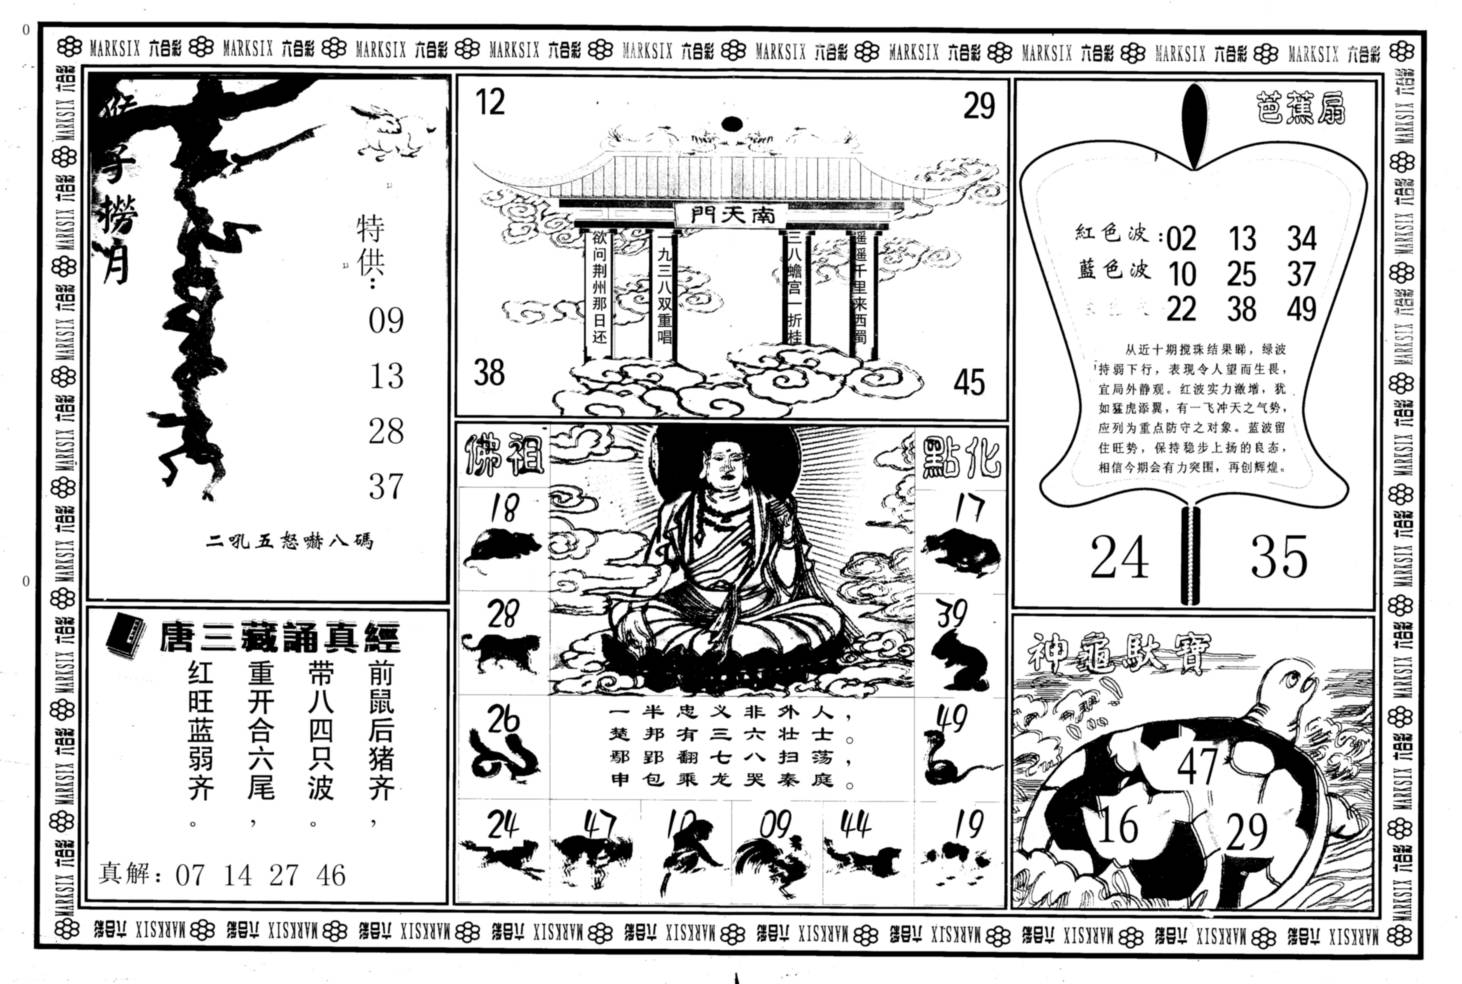 0
0
MARKSIX 六合彩 MARKSIX 六合彩 MARKSIX 六合彩 MARKSIX 六合彩 MARKSIX 六合彩 MARKSIX 六合彩 MARKSIX 六合彩 MARKSIX 六合彩 MARKSIX 六合彩 MARKSIX 六合彩
猴子撈月
特供:
09
13
28
37
二吼五怒嚇八碼
唐三藏誦真經
前鼠后猪齐，
带八四只波。
重开合六尾，
红旺蓝弱齐。
真解: 07 14 27 46
12
29
門天南
遥遥千里来西蜀
三八蟾宫一折桂
一九三八双重唱
欲问荆州那日还
38
45
佛祖
點化
18
17
28
39
26
49
一半忠义非外人，
楚邦有三六壮士。
鄢郢翻七八扫荡，
申包乘龙哭秦庭。
24 47 10 09 44 19
芭蕉扇
紅色波: 02 13 34
藍色波 10 25 37
22 38 49
从近十期搅珠结果睇，绿波
持弱下行，表现令人望而生畏，
宜局外静观。红波实力激增，犹
如猛虎添翼，有一飞冲天之气势，
应列为重点防守之对象。蓝波留
住旺势，保持稳步上扬的良态，
相信今期会有力突围，再创辉煌。
24
35
神龜馱寶
47
16
29
MARKSIX 六合彩 MARKSIX 六合彩 MARKSIX 六合彩 MARKSIX 六合彩 MARKSIX 六合彩 MARKSIX 六合彩 MARKSIX 六合彩 MARKSIX 六合彩 MARKSIX 六合彩 MARKSIX 六合彩